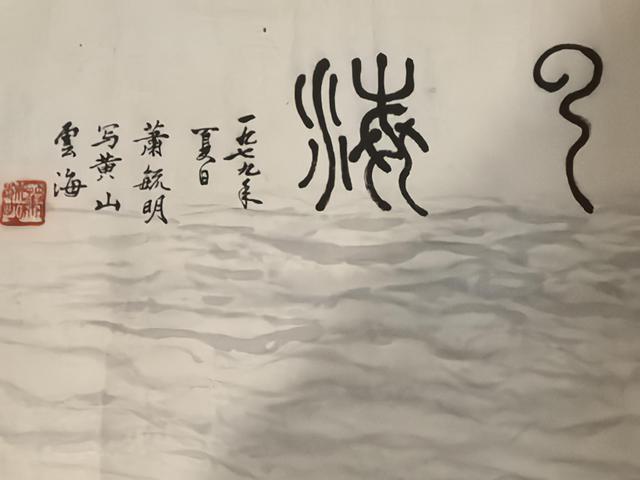 云海
一九七九年
夏日
蕭毓明
写黄山
雲海